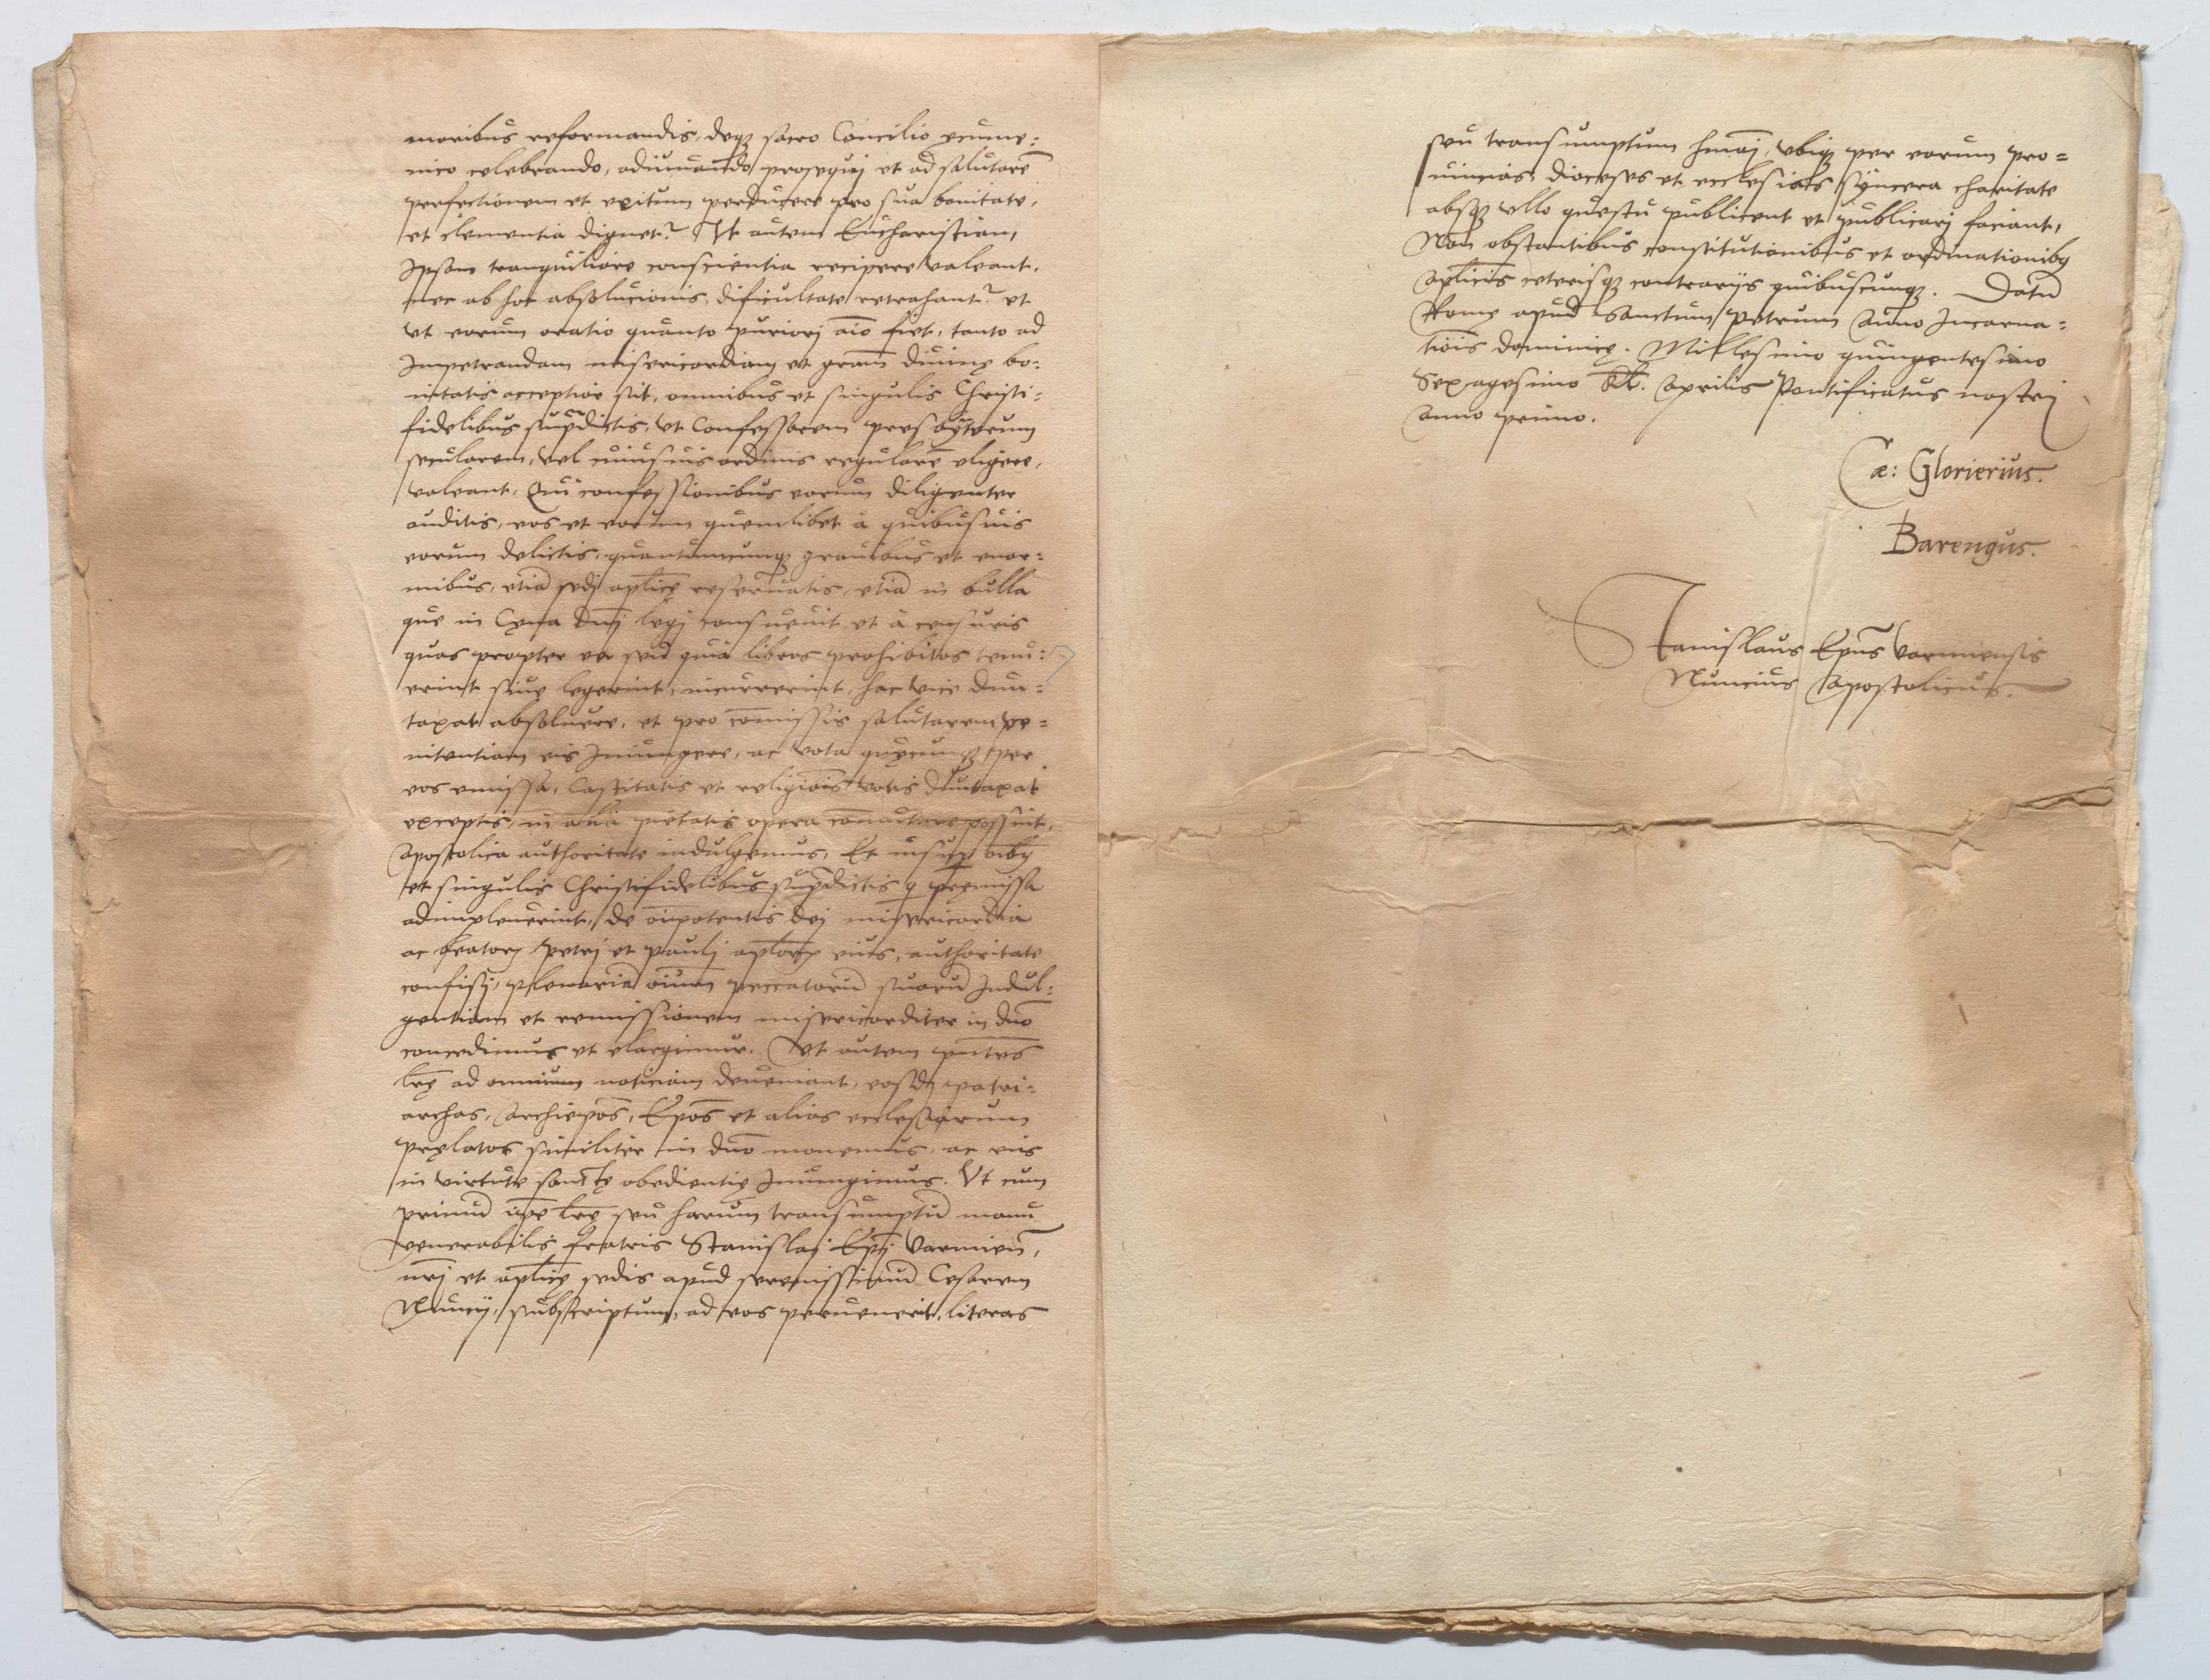 moribus reformandis, deq; sacro Concilio ycume=
nico celebrando, adiuuando prosequj et ad salutarē
perfectionem et exitum perducere pro sua bonitate,
et clementia dignet~. Vt autem Eucharistiam,
Ipsam tranquiliore conscientia recipere valeant,
nec ab hoc absolucionis, dificultate retrahant~. et
vt eorum oratio quanto puriorj aīo fiet, tanto ad
Impetrandam misericordiam et grām diuinę bo=
nitatis acceptior sit, omnibus et singulis Christi=
fidelibus supͣdictis, vt Confessorem presbyterum
secularem, vel cuiusuis ordinis regularē eligere,
valeant, Qui confessionibus eorum diligenter
auditis, eos et eorum quemlibet à quibusuis
eorum delictis, quantumcunq; grauibus et enor=
mibus, etiā sedj aplicę reseruatis, etiā in bulla
que in Cęna dnj legj consueuit, et à censuris
quas propter ea seu quia libros prohibitos tenu=
erint siue legerint, incurrerint, hac vice dun=
taxat absoluere, et pro cōmissis salutarem pe=
nitentiam eis Iniungere, ac vota quęcunq; per
eos emissa, Castitatis et religiōis votis duntaxat
exceptis, in alia pietatis opera cōmutare possint,
Apostolica authoritate indulgemus, Et insup oībq
et singulis Christifidelibus supͣdictis q pręmissa
adimpleuerint, de oīpotentis dej misericordia
ac beator Petrj et Paulj aplor eius, authoritate
confisj, plenariā oīum peccatorū suorū Indul=
gentiam et remissionem misericorditer in dnō
concedimus et elargimur. Vt autem pntes
lrę ad omnium noticiam deueniant, eosdē patri=
archas, Archiepōs, Epōs et alios ecclesiarum
prelatos similiter in dnō monemus, ac eis
in virtute sanctę obedientię Iniungimus. Vt cum
primū ipę lrę seu harum transumptū manu
venerabilis fratris Stanislaj Epj Varmień,
nrj et aplicę sedis apud serenissimū Cesarem
Nuncij, subscriptum, ad eos peruenerit, literas
seu transumptum hmōj, vbiq; per eorum pro=
uincias, dioceses et ecclesias syncera charitate
absq; vllo questu publicent et publicarj faciant,
Non obstantibus constitutionibus et ordinationibq
aplicis ceterisq; contrarijs quibuscunq;. Datū
Romę apud Sanctum Petrum Anno Incarna=
tiōis dominicę. Millesimo quingentesimo
Sexagesimo kl. Aprilis Pontificatus nostrj
anno primo.
Cæ: Glorierius.
Barengus.
Stanislaus Epūs Varmiensis
Nuncius Apostolicus.